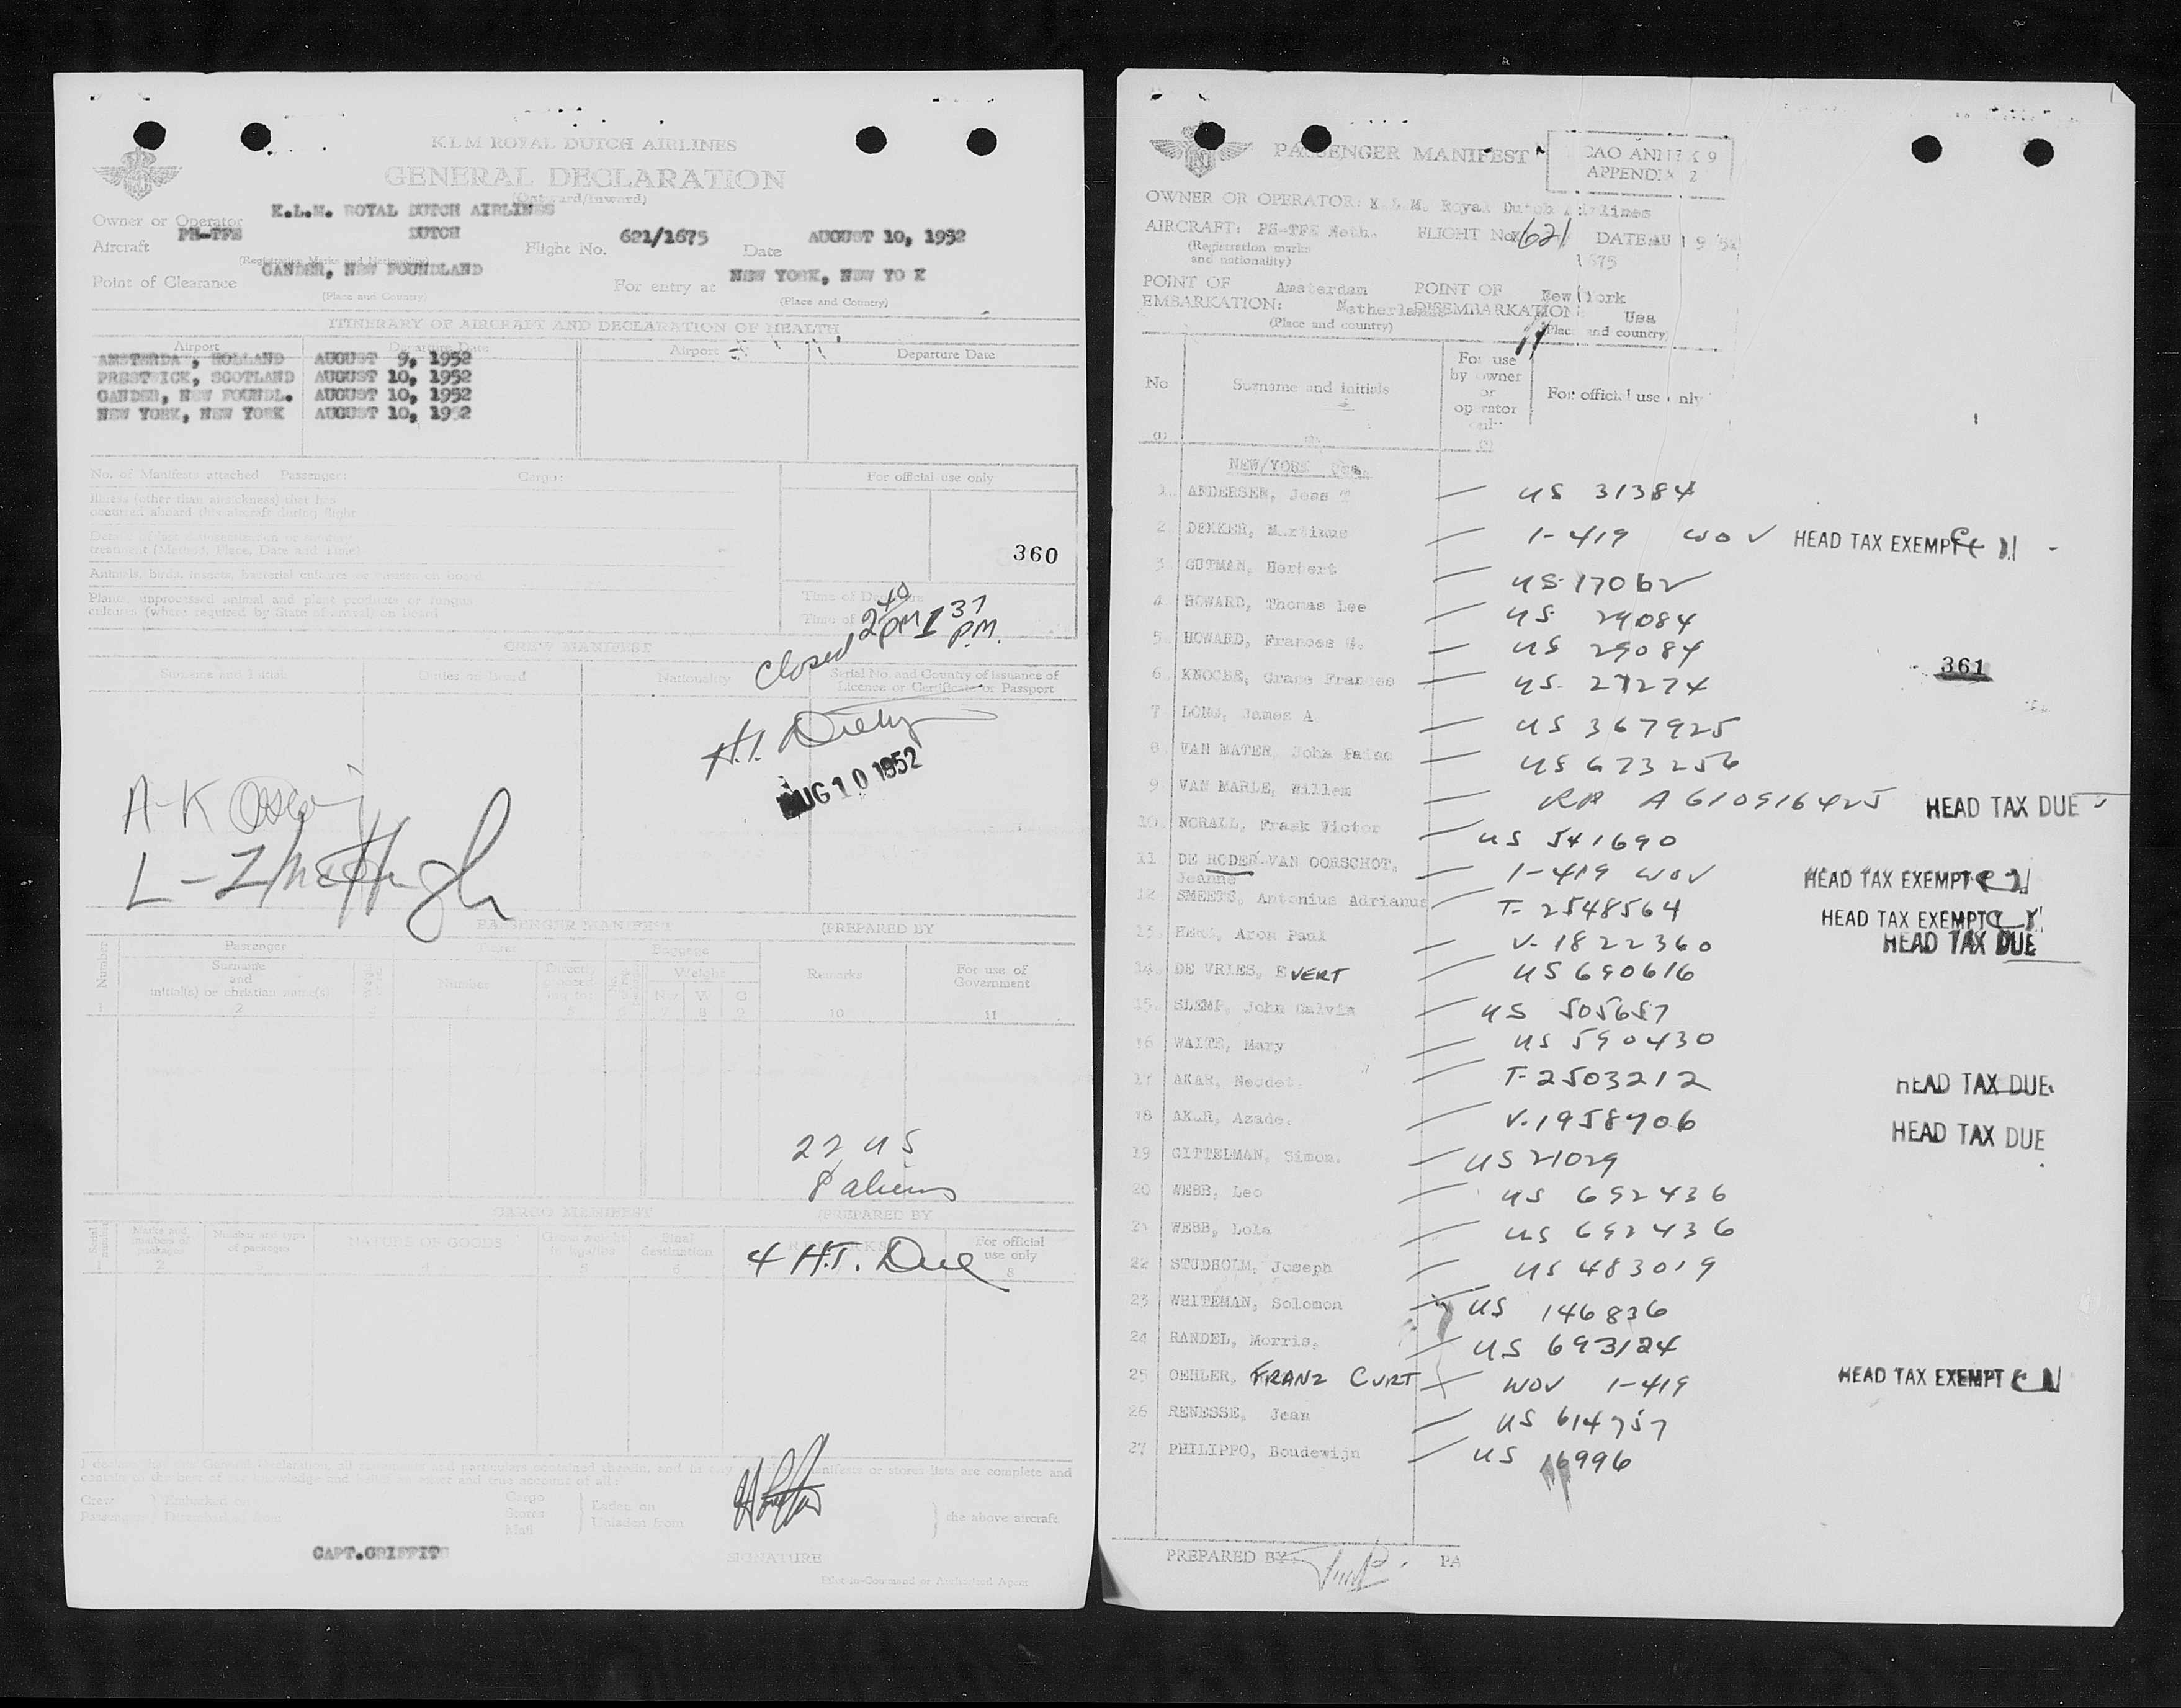 KLM ROYAL DUTCH AIRLINES
GENERAL DECLARATION
(Outward/Inward)
Owner or Operator K.L.M. ROYAL DUTCH AIRLINES
Aircraft PH-TFE DUTCH Flight No. 621/1675 Date AUGUST 10, 1952
(Registration Marks and Nationality)
Point of Clearance GANDER, NEW FOUNDLAND For entry at NEW YORK, NEW YO K
(Place and Country) (Place and Country)
ITINERARY OF AIRCRAFT AND DECLARATION OF HEALTH
Airport Departure Date Airport Departure Date
AMSTERDA , HOLLAND AUGUST 9, 1952
PRESTWICK, SCOTLAND AUGUST 10, 1952
GANDER, NEW FOUNDL. AUGUST 10, 1952
NEW YORK, NEW YORK AUGUST 10, 1952
No. of Manifests attached Passenger: Cargo: For official use only
Illness (other than airsickness) that has
occurred aboard this aircraft during flight
treatment (Method, Place, Date and Time)
360
Animals, birds, insects, bacterial cultures or viruses on board
Plants, unprocessed animal and plant products or fungus
cultures (where required by State of arrival) on board
Time of Departure
Time of
Closed 2 40 PM 1 37 P.M.
CREW MANIFEST
Surname and Initial Duties on Board Nationality Serial No. and Country of issuance of
Licence or Certificate or Passport
H.I.
AUG 10 1952
A-K
L-
PASSENGER MANIFEST (PREPARED BY
Number Passenger Baggage
Surname
and
initial(s) or christian name(s) Number Weight Remarks For use of
Government
1 2 3 4 5 6 7 8 9 10 11
22 US
8 aliens
CARGO MANIFEST (PREPARED BY
Serial number Marks and
numbers of
packages Number and type
of packages NATURE OF GOODS Gross weight Final
destination REMARKS For official
use only
4 H.T. Due
the above aircraft
CAPT.GRIFFITH
SIGNATURE
Pilot-in-Command or Authorized Agent
PASSENGER MANIFEST
ICAO ANNEX 9
APPENDIX 2
OWNER OR OPERATOR: K.L.M. Royal Dutch Airlines
AIRCRAFT: PH-TFE Neth. FLIGHT No. 621 DATE: AU 9 '52
(Registration marks
and nationality) 1675
POINT OF
EMBARKATION: Amsterdam
Netherlands
POINT OF
DISEMBARKATION: New York
Usa
(Place and country) (Place and country)
No Surname and initials For use
by owner
or
operator
only For official use only
(1) (2) (3)
NEW/YORK Usa.
1. ANDERSEN, Jess T — US 31384
2. DEKKER, Martinus — 1-419 WOV HEAD TAX EXEMPT
3 GUTMAN, Herbert — US 17062
4 HOWARD, Thomas Lee — US 29084
5. HOWARD, Frances G. — US 29084
361
6. KNOCHE, Grace Frances — US 27274
7 LONG, James A. — US 367925
8 VAN MATER, John Paine — US 673256
9 VAN MARLE, Willem — RP A610916425 HEAD TAX DUE
10. NORALL, Frank Victor — US 541690
11 DE RODER-VAN OORSCHOT, Jeanne — 1-419 WOV HEAD TAX EXEMPT
12 SMEETS, Antonius Adrianus — T-2548564 HEAD TAX EXEMPT
13. Aron Paul — V-1822360 HEAD TAX DUE
14. DE VRIES, EVERT — US 690616
15. SLEMP, John Calvin — US 505657
16 WAITE, Mary — US 590430
17 AKAR, Necdet. — T-2503212 HEAD TAX DUE
18 AKAR, Azade. — V-1958706 HEAD TAX DUE
19 GITTELMAN, Simon. — US 21029
20 WEBB, Leo — US 692436
21 WEBB, Lola — US 692436
22 STUDHOLM, Joseph — US 483019
23 WHITEMAN, Solomon — US 146836
24 RANDEL, Morris, — US 693124
25 OEHLER, FRANZ CURT — WOV 1-419 HEAD TAX EXEMPT
26 RENESSE, Jean — US 614757
27 PHILIPPO, Boudewijn — US 16996
PREPARED BY: PA